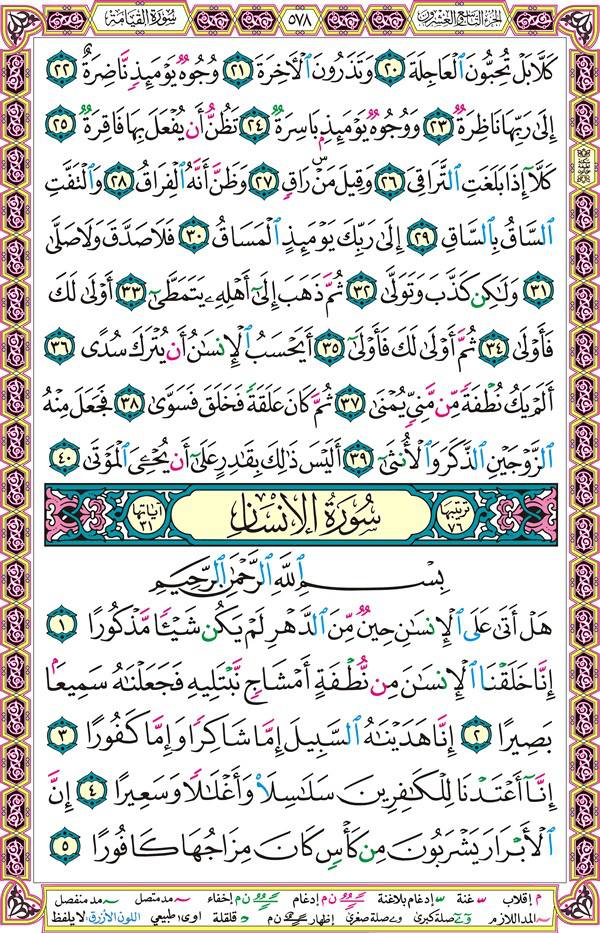 الجزء التاسع والعشرون ٥٧٨ سورة القيامة
كَلَّا بَلْ تُحِبُّونَ ٱلْعَاجِلَةَ ٢٠ وَتَذَرُونَ ٱلْآخِرَةَ ٢١ وُجُوهٌ يَوْمَئِذٍ نَّاضِرَةٌ ٢٢
إِلَىٰ رَبِّهَا نَاظِرَةٌ ٢٣ وَوُجُوهٌ يَوْمَئِذٍۭ بَاسِرَةٌ ٢٤ تَظُنُّ أَن يُفْعَلَ بِهَا فَاقِرَةٌ ٢٥
كَلَّآ إِذَا بَلَغَتِ ٱلتَّرَاقِىَ ٢٦ وَقِيلَ مَنْ ۜ رَاقٍ ٢٧ وَظَنَّ أَنَّهُ ٱلْفِرَاقُ ٢٨ وَٱلْتَفَّتِ
ٱلسَّاقُ بِٱلسَّاقِ ٢٩ إِلَىٰ رَبِّكَ يَوْمَئِذٍ ٱلْمَسَاقُ ٣٠ فَلَا صَدَّقَ وَلَا صَلَّىٰ
٣١ وَلَـٰكِن كَذَّبَ وَتَوَلَّىٰ ٣٢ ثُمَّ ذَهَبَ إِلَىٰٓ أَهْلِهِۦ يَتَمَطَّىٰٓ ٣٣ أَوْلَىٰ لَكَ
فَأَوْلَىٰ ٣٤ ثُمَّ أَوْلَىٰ لَكَ فَأَوْلَىٰٓ ٣٥ أَيَحْسَبُ ٱلْإِنسَـٰنُ أَن يُتْرَكَ سُدًى ٣٦
أَلَمْ يَكُ نُطْفَةً مِّن مَّنِىٍّ يُمْنَىٰ ٣٧ ثُمَّ كَانَ عَلَقَةً فَخَلَقَ فَسَوَّىٰ ٣٨ فَجَعَلَ مِنْهُ
ٱلزَّوْجَيْنِ ٱلذَّكَرَ وَٱلْأُنثَىٰٓ ٣٩ أَلَيْسَ ذَٰلِكَ بِقَـٰدِرٍ عَلَىٰٓ أَن يُحْـِۧىَ ٱلْمَوْتَىٰ ٤٠
ترتيبها ٧٦ سُورَةُ الإِنسَانِ آياتها ٣١
بِسْمِ ٱللَّهِ ٱلرَّحْمَـٰنِ ٱلرَّحِيمِ
هَلْ أَتَىٰ عَلَى ٱلْإِنسَـٰنِ حِينٌ مِّنَ ٱلدَّهْرِ لَمْ يَكُن شَيْـًٔا مَّذْكُورًا ١
إِنَّا خَلَقْنَا ٱلْإِنسَـٰنَ مِن نُّطْفَةٍ أَمْشَاجٍ نَّبْتَلِيهِ فَجَعَلْنَـٰهُ سَمِيعًۢا
بَصِيرًا ٢ إِنَّا هَدَيْنَـٰهُ ٱلسَّبِيلَ إِمَّا شَاكِرًا وَإِمَّا كَفُورًا ٣
إِنَّآ أَعْتَدْنَا لِلْكَـٰفِرِينَ سَلَـٰسِلَا۟ وَأَغْلَـٰلًا وَسَعِيرًا ٤ إِنَّ
ٱلْأَبْرَارَ يَشْرَبُونَ مِن كَأْسٍ كَانَ مِزَاجُهَا كَافُورًا ٥
م إقلاب س غنة س إدغام بلاغنة ن م إدغام ن م إخفاء مد متصل مد منفصل
المد اللازم و ے صلة كبرى و ے صلة صغرى إظهار ن م د قلقلة اوى: طبيعي اللون الأزرق: لا يلفظ